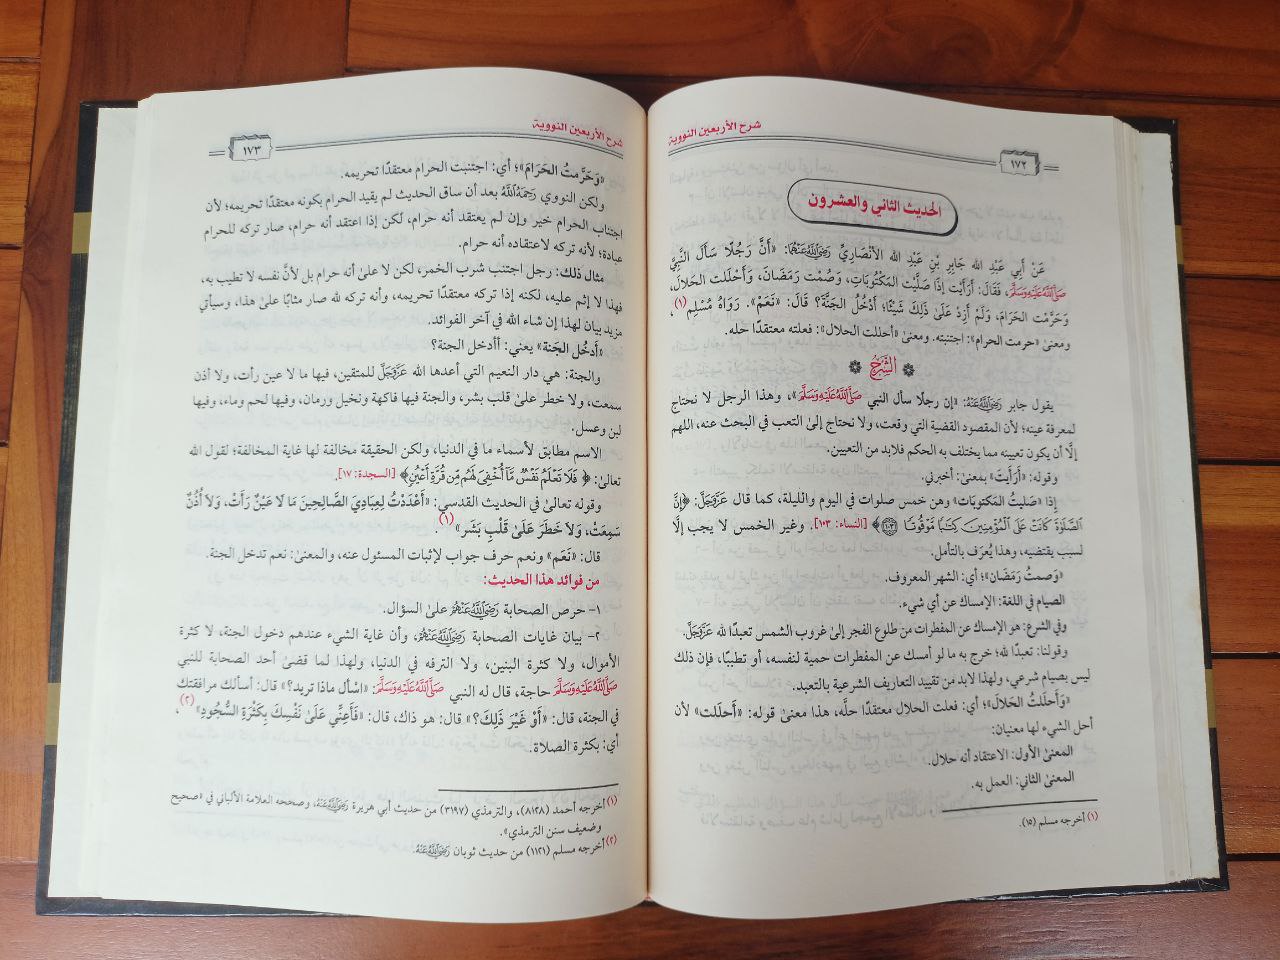 شرح الأربعين النووية
١٧٢
الحديث الثاني والعشرون
عَنْ أَبِي عَبْدِ الله جَابِرِ بْنِ عَبْدِ الله الأَنْصَارِيِّ رَضِيَ اللَّهُ عَنْهُمَا: «أَنَّ رَجُلًا سَأَلَ النَّبِيَّ
صَلَّى اللَّهُ عَلَيْهِ وَسَلَّمَ، فَقَالَ: أَرَأَيْتَ إِذَا صَلَّيْت المَكْتُوبَاتِ، وَصُمْت رَمَضَانَ، وَأَحْلَلت الحَلَالَ،
وَحَرَّمْت الحَرَامَ، وَلَمْ أَزِدْ عَلَىٰ ذَلِكَ شَيْئًا؛ أَدْخُلُ الجَنَّةَ؟ قَالَ: «نَعَمْ». رَوَاهُ مُسْلِم (١)،
ومعنىٰ «حرمت الحرام»: اجتنبته. ومعنىٰ «أحللت الحلال»: فعلته معتقدًا حله.
الشَّرْحُ
يقول جابر رَضِيَ اللَّهُ عَنْهُ: «إن رجلًا سأل النبي صَلَّى اللَّهُ عَلَيْهِ وَسَلَّمَ»، وهذا الرجل لا نحتاج
لمعرفة عينه؛ لأن المقصود القضية التي وقعت، ولا نحتاج إلىٰ التعب في البحث عنه، اللهم
إلَّا أن يكون تعيينه مما يختلف به الحكم فلابد من التعيين.
وقوله: «أَرَأَيتَ» بمعنىٰ: أخبرني.
إذَا «صَليتُ المَكتوبَات» وهن خمس صلوات في اليوم والليلة، كما قال عَزَّوَجَلَّ: ﴿إِنَّ
ٱلصَّلَوٰةَ كَانَتْ عَلَى ٱلْمُؤْمِنِينَ كِتَٰبًا مَّوْقُوتًا ١٠٣﴾ [النساء: ١٠٣]. وغير الخمس لا يجب إلَّا
لسبب يقتضيه، وهذا يُعرَف بالتأمل.
«وَصمتُ رَمَضَان»؛ أي: الشهر المعروف.
الصيام في اللغة: الإمساك عن أي شيء.
وفي الشرع: هو الإمساك عن المفطرات من طلوع الفجر إلىٰ غروب الشمس تعبدًا لله عَزَّوَجَلَّ.
وقولنا: تعبدًا لله؛ خرج به ما لو أمسك عن المفطرات حمية لنفسه، أو تطببًا، فإن ذلك
ليس بصيام شرعي، ولهذا لابد من تقييد التعاريف الشرعية بالتعبد.
«وَأَحلَلتُ الحَلَالَ»؛ أي: فعلت الحلال معتقدًا حلَّه، هذا معنىٰ قوله: «أَحلَلت» لأن
أحل الشيء لها معنيان:
المعنىٰ الأول: الاعتقاد أنه حلال.
المعنىٰ الثاني: العمل به.
(١) أخرجه مسلم (١٥).
شرح الأربعين النووية
١٧٣
«وَحَرَّمتُ الحَرَامَ»؛ أي: اجتنبت الحرام معتقدًا تحريمه.
ولكن النووي رَحِمَهُ اللَّهُ بعد أن ساق الحديث لم يقيد الحرام بكونه معتقدًا تحريمه؛ لأن
اجتناب الحرام خير وإن لم يعتقد أنه حرام، لكن إذا اعتقد أنه حرام، صار تركه للحرام
عبادة؛ لأنه تركه لاعتقاده أنه حرام.
مثال ذلك: رجل اجتنب شرب الخمر، لكن لا علىٰ أنه حرام بل لأنَّ نفسه لا تطيب به،
فهذا لا إثم عليه، لكنه إذا تركه معتقدًا تحريمه، وأنه تركه لله صار مثابًا علىٰ هذا، وسيأتي
مزيد بيان لهذا إن شاء الله في آخر الفوائد.
«أَدخُل الجَنة» يعني: أأدخل الجنة؟
والجنة: هي دار النعيم التي أعدها الله عَزَّوَجَلَّ للمتقين، فيها ما لا عين رأت، ولا أذن
سمعت، ولا خطر علىٰ قلب بشر، والجنة فيها فاكهة ونخيل ورمان، وفيها لحم وماء، وفيها
لبن وعسل.
الاسم مطابق لأسماء ما في الدنيا، ولكن الحقيقة مخالفة لها غاية المخالفة؛ لقول الله
تعالىٰ: ﴿فَلَا تَعْلَمُ نَفْسٌ مَّآ أُخْفِىَ لَهُم مِّن قُرَّةِ أَعْيُنٍ﴾ [السجدة: ١٧].
وقوله تعالىٰ في الحديث القدسي: «أَعْدَدْتُ لِعِبَادِيَ الصَّالِحِينَ مَا لَا عَيْنٌ رَأَتْ، وَلَا أُذُنٌ
سَمِعَتْ، وَلَا خَطَرَ عَلَىٰ قَلْبِ بَشَر» (١).
قال: «نَعَم» ونعم حرف جواب لإثبات المسئول عنه، والمعنىٰ: نعم تدخل الجنة.
من فوائد هذا الحديث:
١- حرص الصحابة رَضِيَ اللَّهُ عَنْهُمْ علىٰ السؤال.
٢- بيان غايات الصحابة رَضِيَ اللَّهُ عَنْهُمْ، وأن غاية الشيء عندهم دخول الجنة، لا كثرة
الأموال، ولا كثرة البنين، ولا الترفه في الدنيا، ولهذا لما قضىٰ أحد الصحابة للنبي
صَلَّى اللَّهُ عَلَيْهِ وَسَلَّمَ حاجة، قال له النبي صَلَّى اللَّهُ عَلَيْهِ وَسَلَّمَ: «اسْأَل ماذا تريد؟» قال: أسألك مرافقتك
في الجنة، قال: «أَوْ غَيْرَ ذَلِكَ؟» قال: هو ذاك، قال: «فَأَعِنِّي عَلَىٰ نَفْسِكَ بِكَثْرَةِ السُّجُودِ» (٢)،
أي: بكثرة الصلاة.
(١) أخرجه أحمد (٨١٢٨)، والترمذي (٣١٩٧) من حديث أبي هريرة رَضِيَ اللَّهُ عَنْهُ، وصححه العلامة الألباني في «صحيح
وضعيف سنن الترمذي».
(٢) أخرجه مسلم (١١٢١) من حديث ثوبان رَضِيَ اللَّهُ عَنْهُ.